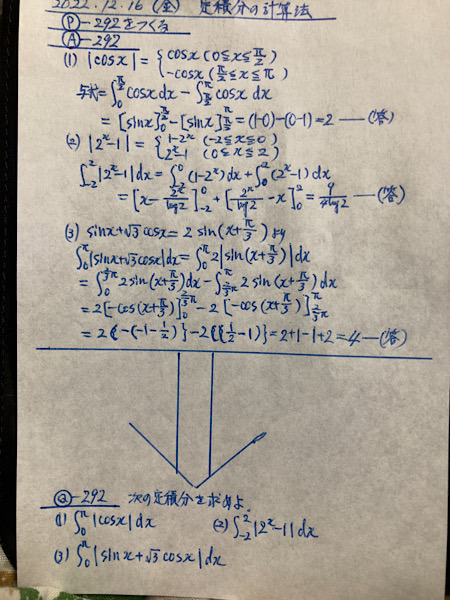 2022.12.16 (金) 定積分の計算法
Ⓟ-292をつくる
Ⓐ-292
(1) |cosx| = { cosx (0≦x≦π/2)
-cosx (π/2≦x≦π)
与式 = ∫₀^{π/2} cosx dx - ∫_{π/2}^{π} cosx dx
= [sinx]₀^{π/2} - [sinx]_{π/2}^{π} = (1-0)-(0-1) = 2 ―(答)
(2) |2^x-1| = { 1-2^x (-2≦x≦0)
2^x-1 (0≦x≦2)
∫_{-2}^{2} |2^x-1| dx = ∫_{-2}^{0} (1-2^x) dx + ∫₀^{2} (2^x-1) dx
= [x - 2^x/log2]_{-2}^{0} + [2^x/log2 - x]₀^{2} = 9/4log2 ―(答)
(3) sinx+√3 cosx = 2 sin(x+π/3) より
∫₀^{π} |sinx+√3 cosx| dx = ∫₀^{π} 2|sin(x+π/3)| dx
= ∫₀^{2/3π} 2 sin(x+π/3) dx - ∫_{2/3π}^{π} 2 sin(x+π/3) dx
= 2[-cos(x+π/3)]₀^{2/3π} - 2[-cos(x+π/3)]_{2/3π}^{π}
= 2{-(-1-1/2)} - 2{(1/2-1)} = 2+1-1+2 = 4 ―(答)
ⓠ-292 次の定積分を求めよ.
(1) ∫₀^{π} |cosx| dx (2) ∫_{-2}^{2} |2^x-1| dx
(3) ∫₀^{π} |sinx+√3 cosx| dx